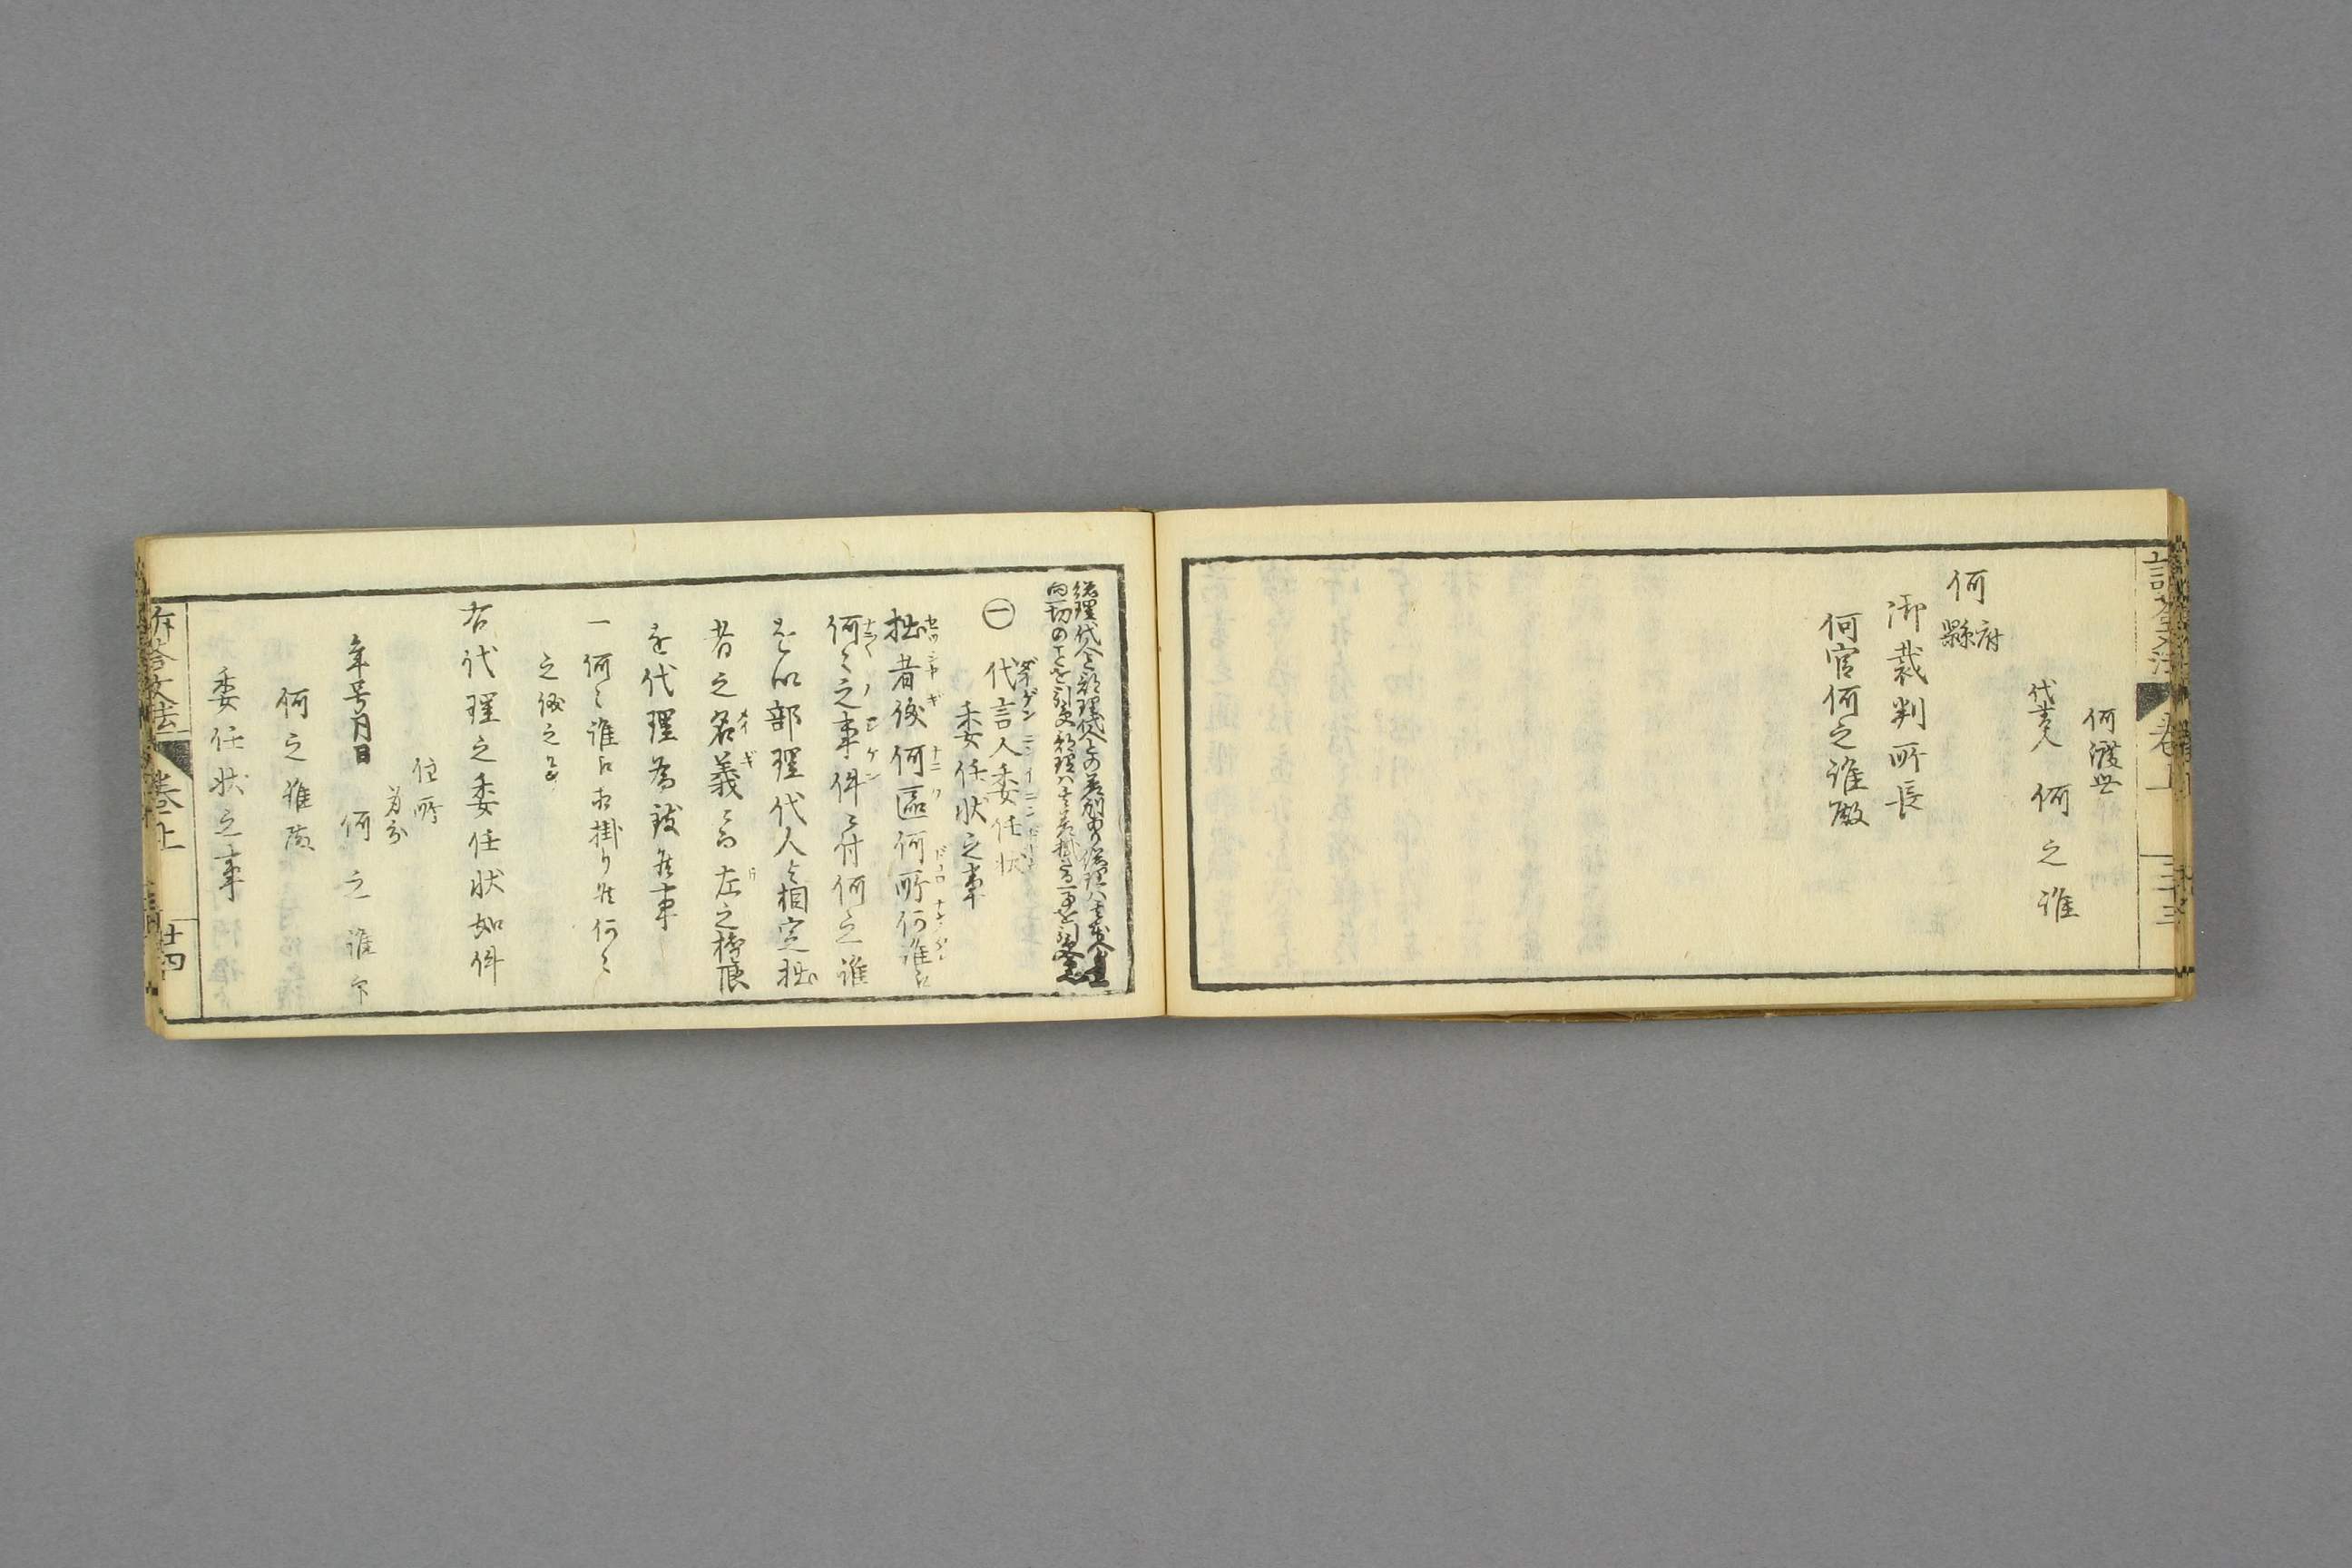 何渡世
代書人 何之誰
何府縣
御裁判所長
何官何之誰殿
三十三
総理代人と部理代人との差別あり総理ハ
向一切のことを引受部理ハ
㊀ 代言人委任状
委任状之事
拙者儀何區何所何誰ゟ
何〻之事件ニ付何之誰
を以部理代人と相定拙
者之名義ニ而左之権限
を代理為致候事
一何〻誰ゟ相掛り候何〻
之儀之事
右代理之委任状如件
住所
身分
年号月日 何之誰印
何之誰殿
委任状之事
訴答文法 巻之上 廿四